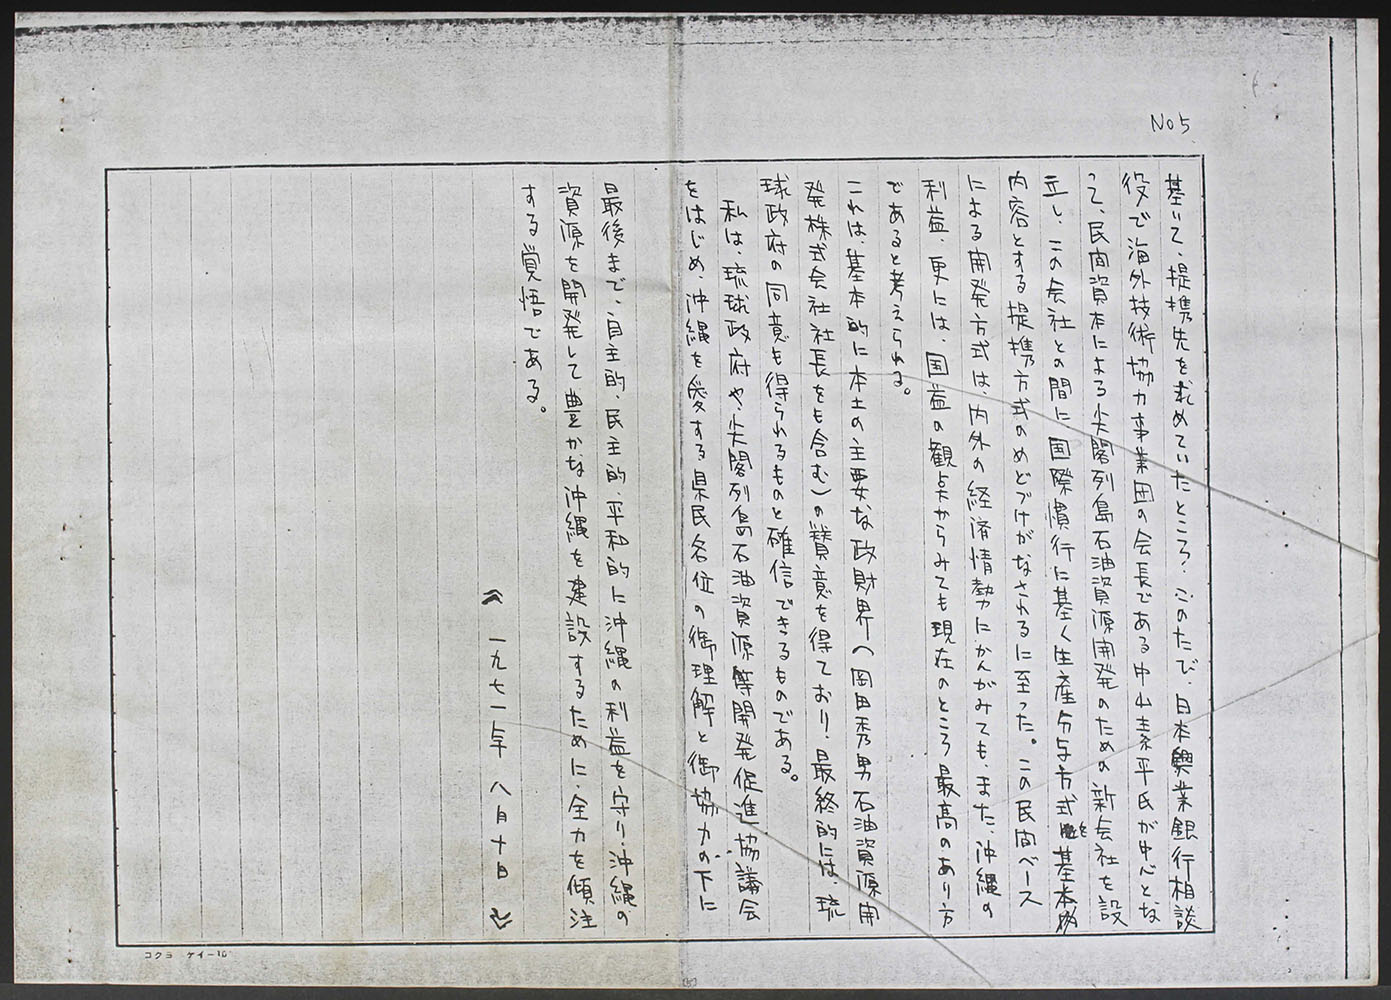 No 5
基いて、提携先を求めていたところ、このたび、日本興業銀行相談
役で海外技術協力事業団の会長である中山素平氏が中心とな
って、民間資本による尖閣列島石油資源開発のための新会社を設
立し、この会社との間に国際慣行に基く生産分与方式を基本的
内容とする提携方式のめどづけがなされるに至った。この民間ベース
による開発方式は、内外の経済情勢にかんがみても、また、沖縄の
利益、更には、国益の観点からみても現在のところ最高のあり方
であると考えられる。
これは、基本的に本土の主要な政財界(岡田秀男石油資源開
発株式会社社長をも含む)の賛意を得ており、最終的には、琉
球政府の同意も得られるものと確信できるものである。
私は、琉球政府や、尖閣列島石油資源等開発促進協議会
をはじめ、沖縄を愛する県民各位の御理解と御協力の下に
最後まで、自主的、民主的、平和的に沖縄の利益を守り、沖縄の
資源を開発して豊かな沖縄を建設するために、全力を傾注
する覚悟である。
《一九七一年八月十日》
コクヨ ケイ-10